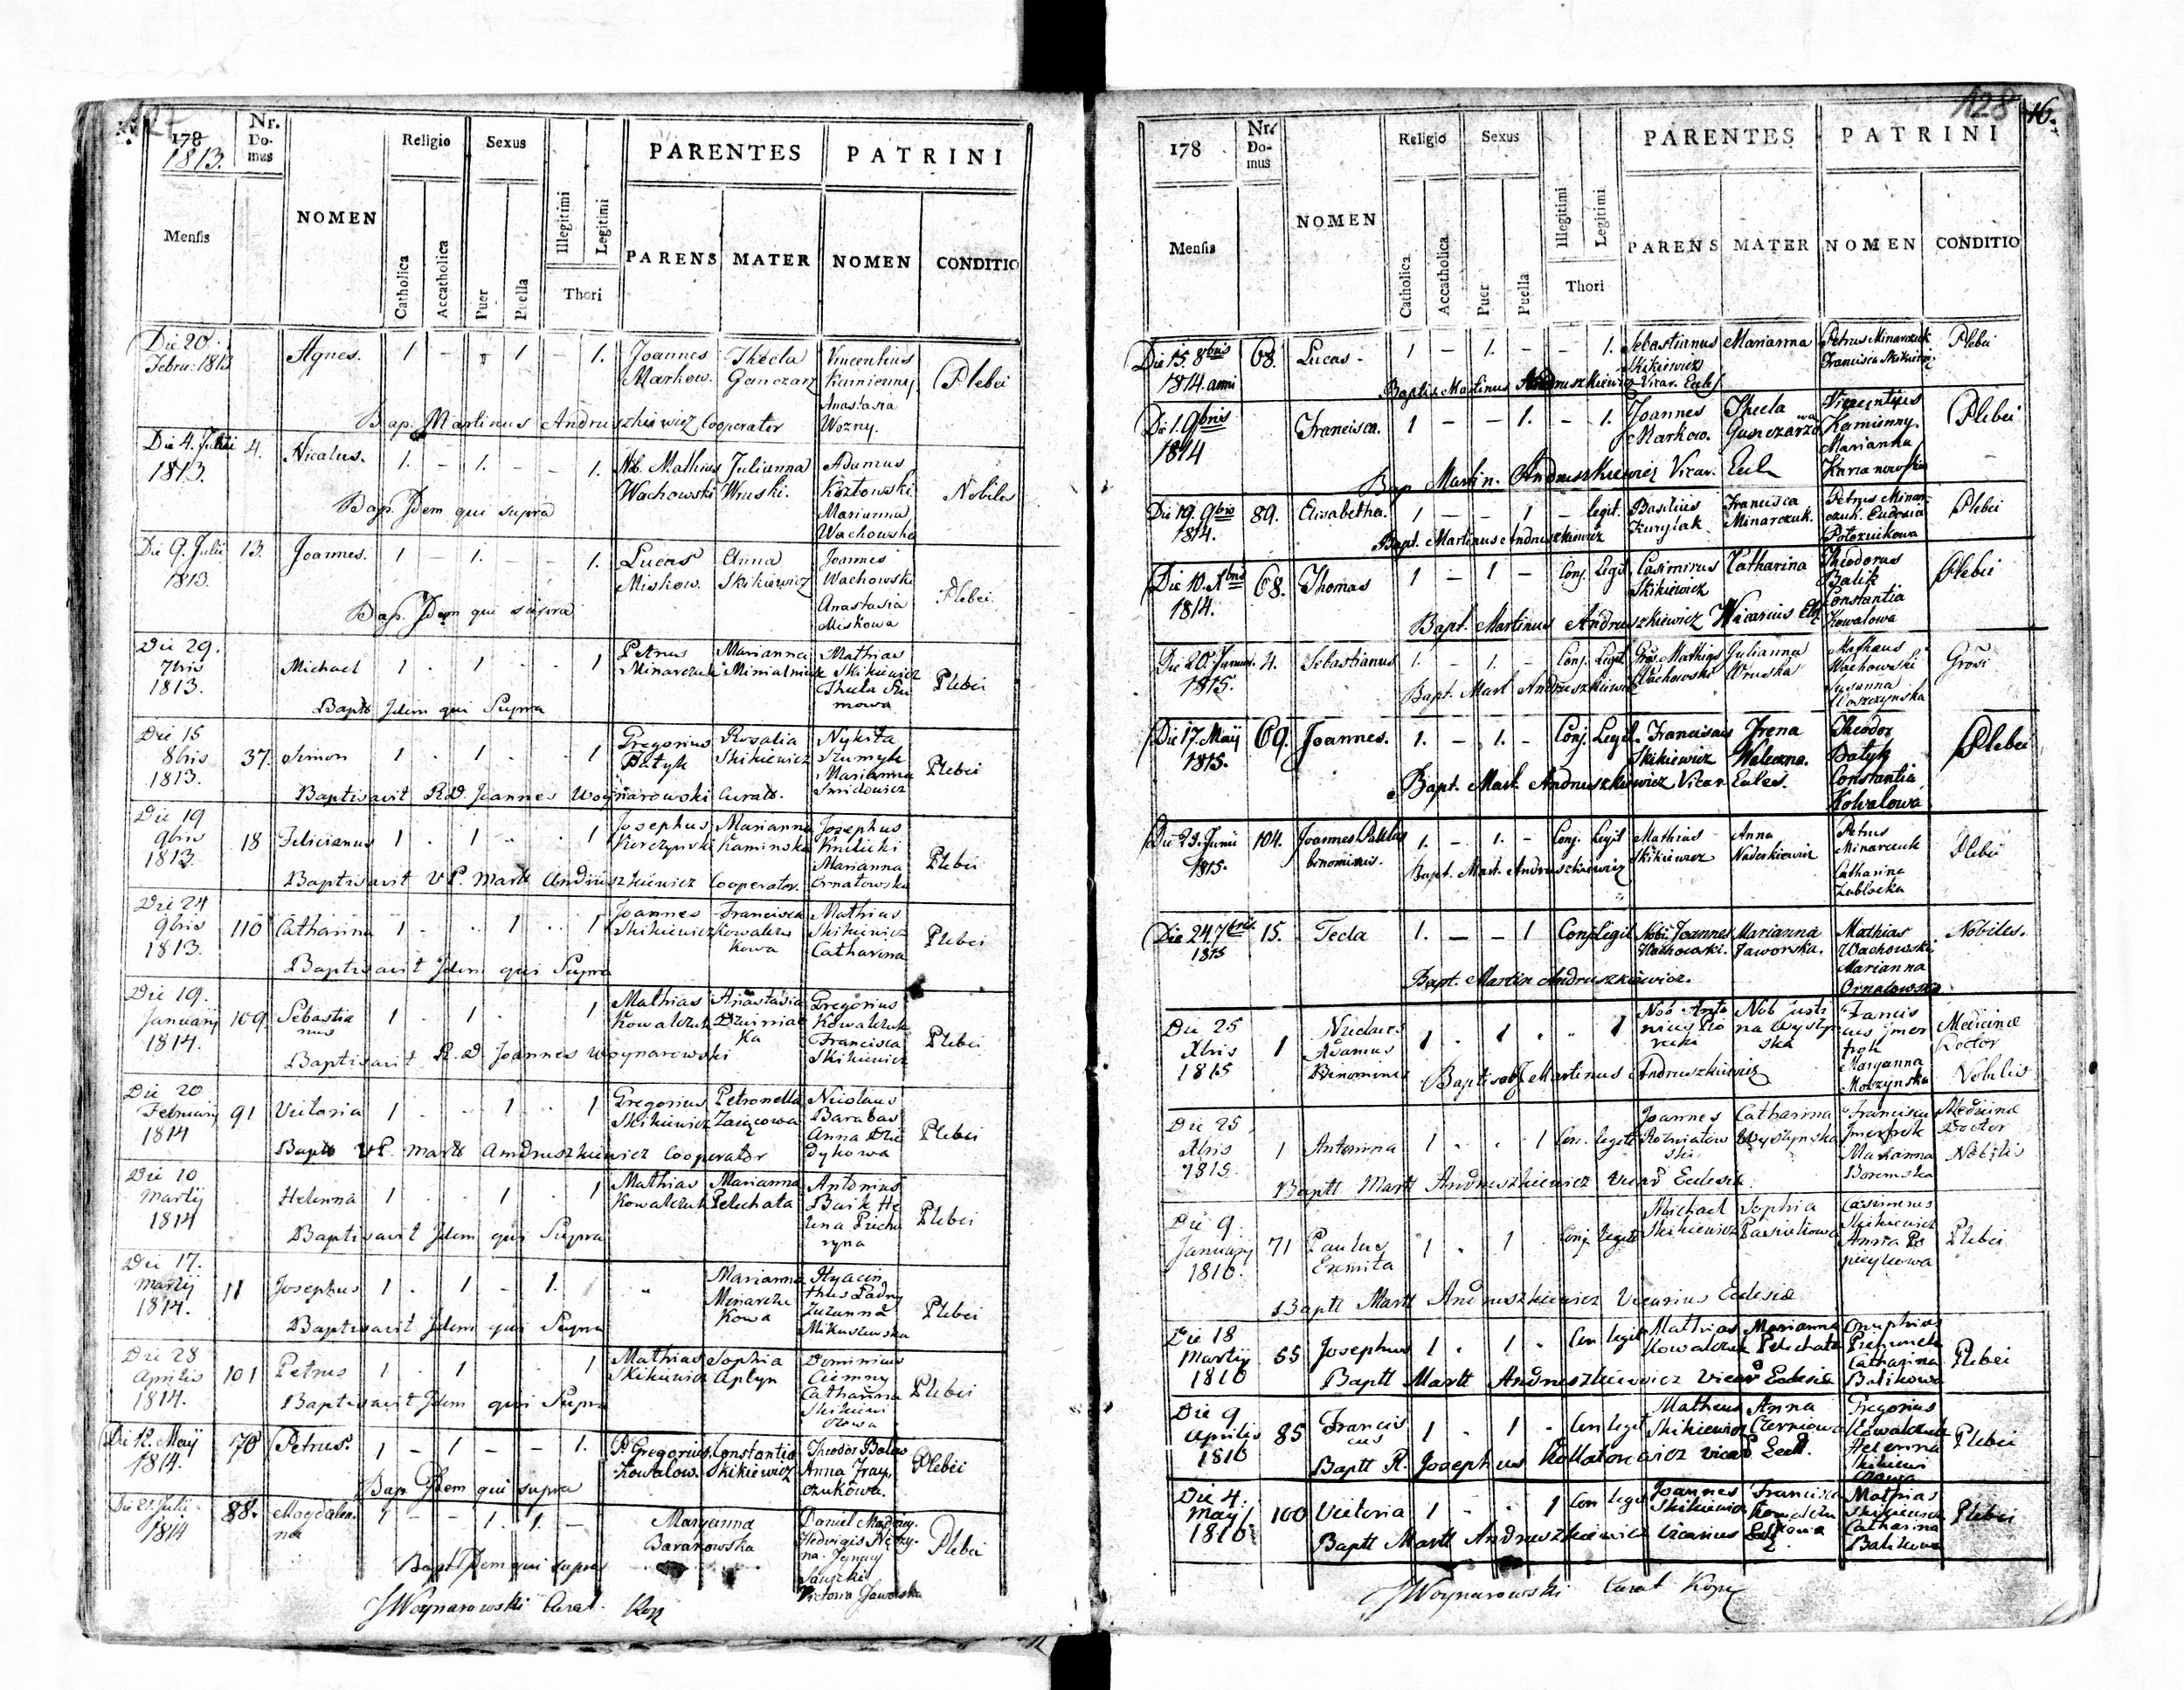 127
178
1813.
Nr.
Do-
mus
NOMEN
Religio
Sexus
PARENTES
PATRINI
Mensis
Catholica
Accatholica
Puer
Puella
Illegitimi
Legitimi
Thori
PARENS
MATER
NOMEN
CONDITIO
Die 20. Agnes. 1 - - 1 1. Joannes Thecla Vincentius Plebei
Febru: 1813 Markow. Ganczarz Kamienny.
Anastasia
Bap. Martinus Andruszkiewicz Cooperator Wozny.
Die 4. Julii 4. Nicolus. 1. - 1. - - 1. Nb. Mathias Julianna Adamus Nobiles
1813. Wachowski Wruski. Kozłowski
Bap. Idem qui supra Marianna
Wachowska
Die 9. Julii 13. Joannes. 1 - 1. - - 1. Lucas Anna Joannes Plebei.
1813. Miskow. Skikiewicz Wachowski
Bap. Idem qui supra Anastasia
Miskowa
Die 29. Michael 1 . 1 . . 1 Petrus Marianna Mathias Plebei
7bris Minarczuk Skikiewicz
1813. Thecla
mowa
Bapts Idem qui Supra
Die 15 37. Simon 1 . 1 . . 1 Gregorius Rosalia Nykita Plebei
8bris Batyk Skikiewicz Szumyk
1813. Marianna
Baptisavit R.D. Joannes Woynarowski Curats. Smidowicz
Die 19 18 Felicianus 1 . 1 . . 1 Josephus Marianna Josephus Plebei
9bris Korczynski Kaminska Kmilicki
1813. Marianna
Baptisavit V.P. Mart Andruszkiewicz Cooperator. Ornatowska
Die 24 110 Catharina 1 . . 1 . 1 Joannes Francisca Mathias Plebei
9bris Skikiewicz Kowalczu Skikiewicz
1813. kowa Catharina
Baptisavit Idem qui Supra
Die 19. 109 Sebastia 1 . 1 . . 1 Mathias Anastasia Gregorius Plebei
Januarij nus Kowalczuk Dzwiniac Kowalczuk
1814. ka Francisca
Baptisavit R.D. Joannes Woynarowski Skikiewicz
Die 20 91 Victoria 1 . . 1 . 1 Gregorius Petronella Nicolaus Plebei
Februarij Skikiewicz Zaiącowa Barabas
1814 Anna Dzie
Bapts V.P. Marts Andruszkiewicz Cooperator dykowa
Die 10 Helenna 1 . . 1 . 1 Mathias Marianna Antonius Plebei
Martij Kowalczuk Pelechata Basik He
1814 lena
Baptisavit Idem qui Supra ryna
Die 17. 11 Josephus 1 . 1 - 1. " Marianna Hyacin Plebei
Martij Minarczu thus Ładny
1814. kowa Zuzanna
Baptisavit Idem qui Supra Mikuszewska
Die 28 101 Petrus 1 . 1 . . 1 Mathias Sophia Dominicus Plebei
Aprilis Skikiewicz Aplyn Ciemny
1814. Catharina
Baptisavit Idem qui Supra Skikiewi
czowa
Die 12. Maij 70 Petrus. 1 - 1 - - 1. P. Gregorius Constantia Theodor Balow Plebei
1814. Kowalow. Skikiewicz Anna
Bap. Idem qui supra czukowa.
Die 21. Julii 88. Magdalen- 1 - - 1. 1. - Maryanna Daniel Plebei
1814 na Baranowska Hedvigis
na. Ignacy
Bapt Idem qui supra Sawicki
Victoria Jaworska
J Woynarowski Curat. Kopy
128 16.
178
Nr.
Do-
mus
NOMEN
Religio
Sexus
PARENTES
PATRINI
Mensis
Catholica
Accatholica
Puer
Puella
Illegitimi
Legitimi
Thori
PARENS
MATER
NOMEN
CONDITIO
Die 15. 8bris 68. Lucas - 1 - 1. - - 1. Sebastianus Marianna Petrus Minarczuk Plebei
1814. anni Skikiewicz Francisca Skikiewicz
Baptis. Martinus Andruszkiewicz Vicar. Eccles
Die 1. 9bris Francisca. 1 - - 1. - 1. Joannes Thecla Vicentius Plebei
1814 Markow. Gunczarzowna Kamienny.
Marianna
Bap. Martin. Andruszkiewicz Vicar. Eccle Karianowska
Die 19. 9bris 89. Elisabetha. 1 - - 1 - legit. Basilius Francisca Petrus Minar- Plebei
1814. Kurylak Minarczuk. czuk. Eudoxia
Bapt. Martinus Andruszkiewicz Potoznikowa
Die 10. Xbris 68. Thomas 1 - 1 - Conj. Legit. Casimirus Catharina Theodorus Plebei
1814. Skikiewicz Balik
Constantia
Bapt. Martinus Andruszkiewicz Vicarius Kowalowa
Die 20. Januar. 4. Sebastianus 1. - 1. - Conj. Legit. Gros. Mathias Julianna Mathaus Grosi
1815. Wachowski Wruska Wachowski
Bapt. Mart Andruszkiewicz Susanna
Woszczynska
Die 17. Maij 69. Joannes. 1. - 1. - Conj. Legit. Franciscus Irena Theodor Plebei
1815. Skikiewicz Waleczna. Batyk
Constantia
Bapt. Mart. Andruszkiewicz Vicar Eccles. Kowalowa
Die 23. Junii 104. Joannes Paulus 1. - 1. - Conj. Legit Mathias Anna Petrus Plebei
1815. binominus. Skikiewicz Naderkiewicz Minarczuk
Bapt. Mart. Andruszkiewicz Catharina
Zabłocka
Die 24. 7bris. 15. Tecla 1. - - 1 Conj. Legit Nobi. Joannes Marianna Mathias Nobiles.
1815 Wachowski. Jaworska. Wachowski
Marianna
Bapt. Martin Andruszkiewicz. Ornatowska
Die 25 1 Nicolaus 1 . 1 . . 1 Nob. Anto Nob Justi Francis Medicinae
Xbris Adamus nius na Wyszyn cus Doctor
1815 Binominus ska Maryanna
Baptisat Martinus Andruszkiewicz Nobilis
Die 25 1 Antonina 1 . . 1 Con. legit Joannes Catharina Franciscus Medicinae
Xbris Rozwiatow Wyszynska Doctor
1815. ski Marianna Nobilis
Baptt Martt Andruszkiewicz Vicar Ecclesiae. Boremska
Die 9. 71 Paulus 1 . 1 Conj. Legit Michael Sophia Casimirus Plebei
January Eremita Skikiewicz Skikiewicz
1816. Anna
Baptt Martt Andruszkiewicz Vicarius Ecclesiae
Die 18 55 Josephus 1 . 1 . Con legit Mathias Marianna Onuphrius Plebei
Martij Kowalczuk Pelechata
1816 Catharina
Baptt Martt Andruszkiewicz Vicar Ecclesiae Balikowa
Die 9 85 Francis 1 . 1 . Con legit Matheus Anna Gregorius Plebei
Aprilis cus Skikiewicz Czerniowa Kowalczuk
1816 Helenna
Baptt R. Josephus Kollatonowicz Vicar Eccl. Skikiewi
czowa
Die 4. 100 Victoria 1 . . 1 Con legit Joannes Francisca Mathias Plebei
Maij Skikiewicz Kowalczu Skikiewicz
1816 kowa Catharina
Baptt Martt Andruszkiewicz Vicarius Balikowa
J Woynarowski Curat Kopy